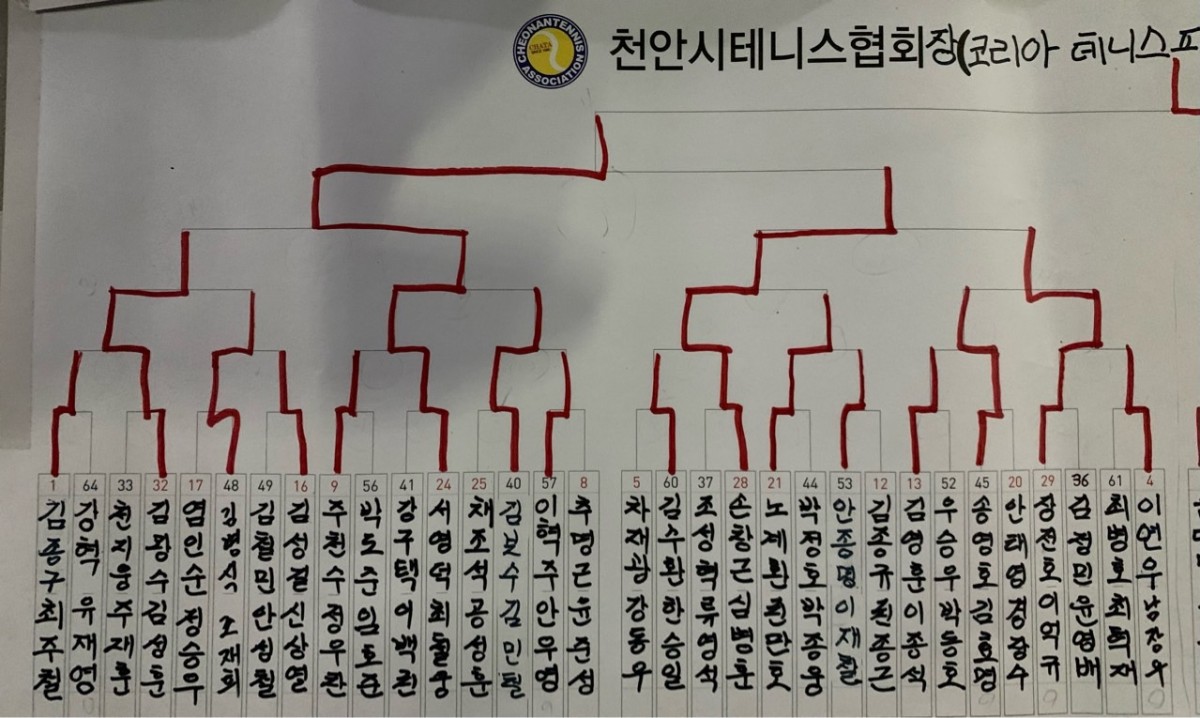 CHEONAN TENNIS ASSOCIATION
CHATA
천안시테니스협회장(코리아 테니스
1 64 33 32 17 48 49 16 9 56 41 24 25 40 57 8 5 60 37 28 21 44 53 12 13 52 45 20 29 36 61 4
김종구 최주철
강혁 유재영
천지웅 주재훈
김황수 김성훈
염인순 정승우
김병식 조재희
김철민 안성철
김성걸 신상열
주천수 정우환
박도준 임호준
강구택 이백진
서영덕 최철웅
채조석 공성훈
김보수 김민필
이혁주 안우영
추명근 윤준성
차재광 강동우
김수환 한승일
조성혁 류영석
손창근 심병훈
노제환 전만호
박정호 박종웅
안종명 이재활
김종규 전종근
김영훈 이종석
우승우 박등호
송영호 김효명
안태영 경장수
장전호 이억규
김정민 윤영배
최병호 최혁재
이연우 남창우